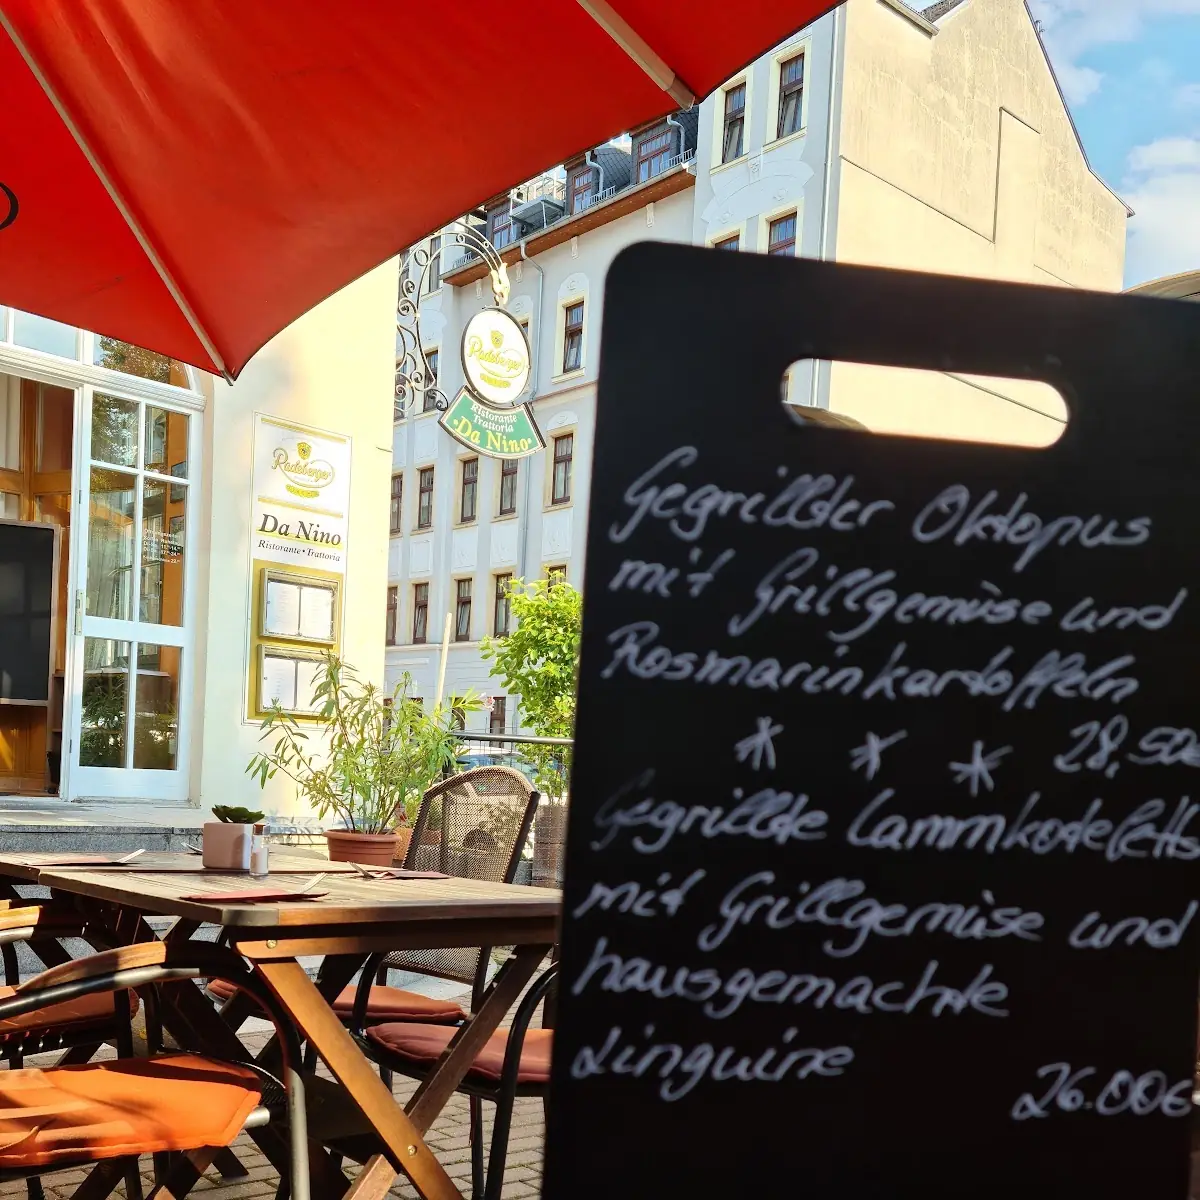 Radeberger
Ristorante
Trattoria
Da Nino
Radeberger
Da Nino
Ristorante • Trattoria
Gegrillter Oktopus
mit Grillgemüse und
Rosmarinkartoffeln
* * * 28,50€
Gegrillte Lammkoteletts
mit Grillgemüse und
hausgemachte
Linguine
26.00€